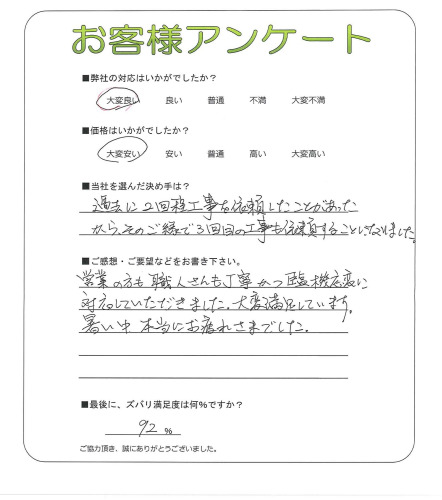 お客様アンケート
■弊社の対応はいかがでしたか？
大変良い 良い 普通 不満 大変不満
■価格はいかがでしたか？
大変安い 安い 普通 高い 大変高い
■当社を選んだ決め手は？
過去に2回程工事を依頼したことがあった
から、そのご縁で3回目の工事も依頼することにいたしました。
■ご感想・ご要望などをお書き下さい。
営業の方も職人さんも丁寧かつ臨機応変に
対応していただきました。大変満足しています。
暑い中本当にお疲れさまでした。
■最後に、ズバリ満足度は何%ですか？
92 %
ご協力頂き、誠にありがとうございました。